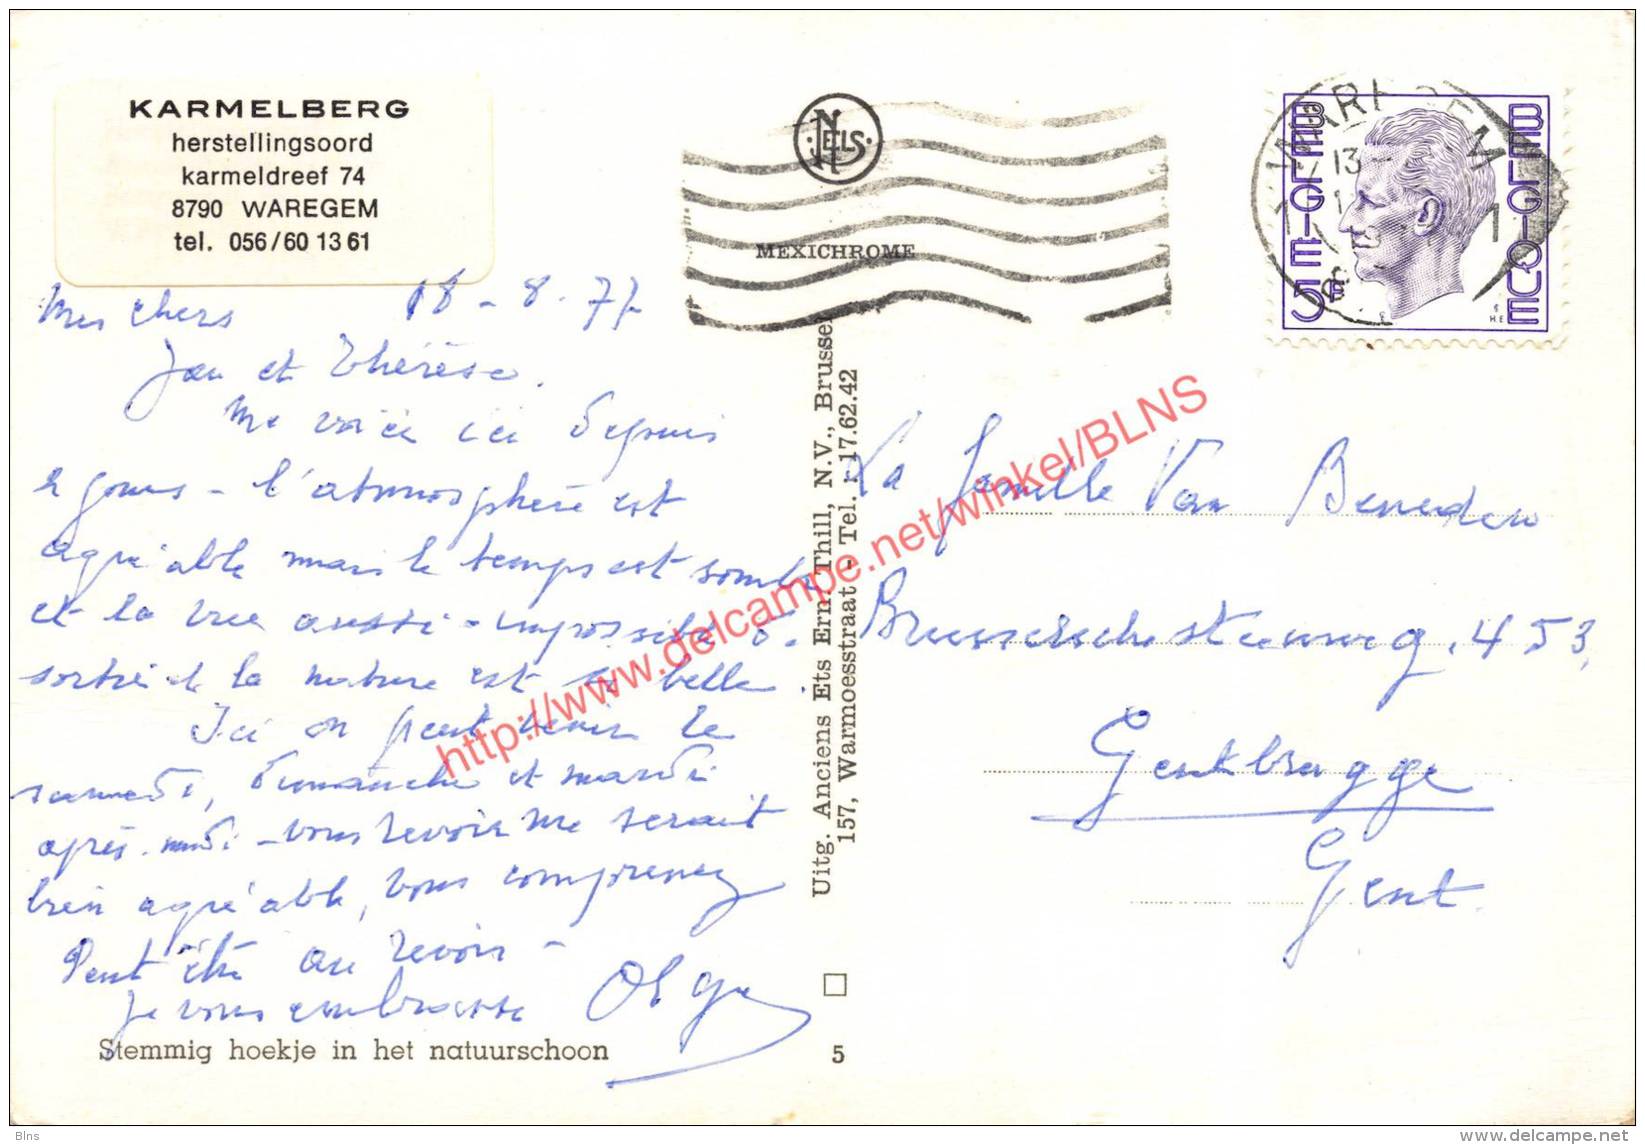 KARMELBERG
herstellingsoord
karmeldreef 74
8790 WAREGEM
tel. 056/60 13 61
18 - 8 - 77
Mes chers
Jan et Thérèse.
Me voici ici depuis
jours - l'atmosphère est
agréable mais le temps est sombre
et la vue aussi - impossible de
sortir et la nature est si belle.
Ici on peut venir le
samedi, dimanche et mardi
après-midi - vous revoir me serait
bien agréable, vous comprenez
Peut être au revoir -
Je vous embrasse Olga
Stemmig hoekje in het natuurschoon
NELS
MEXICHROME
Uitg. Anciens Ets Ern. Thill, N.V., Brussel
157, Warmoesstraat - Tel. : 17.62.42
5
WAREGEM
13
1
BELGIE
BELGIQUE
5F
La famille Van Beneden
Brusselschesteenweg. 453,
Gentbrugge
Gent
http://www.delcampe.net/winkel/BLNS
Blns
www.delcampe.net